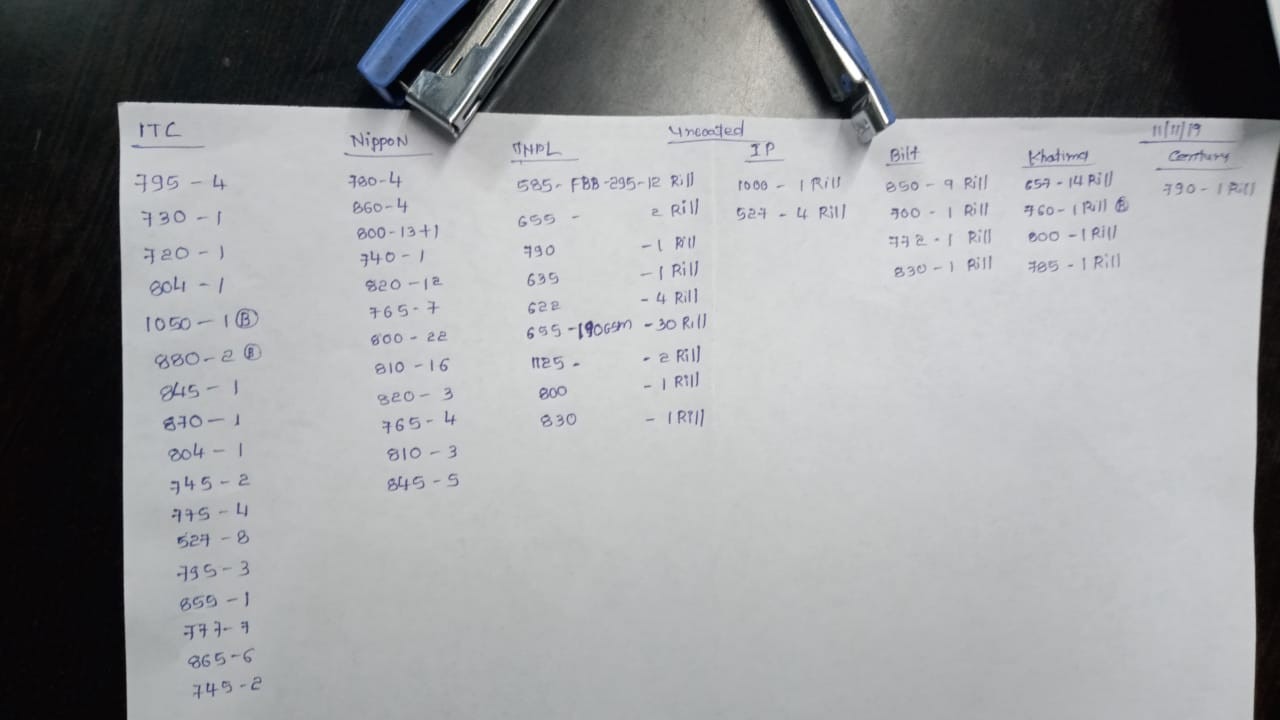 Uncoated
11/11/19
ITC
795 - 4
730 - 1
720 - 1
804 - 1
1050 - 1 Ⓑ
880 - 2 Ⓑ
845 - 1
870 - 1
804 - 1
745 - 2
775 - 4
527 - 8
795 - 3
855 - 1
777 - 7
865 - 6
745 - 2
Nippon
780 - 4
860 - 4
800 - 13+1
740 - 1
820 - 12
765 - 7
800 - 22
810 - 16
820 - 3
765 - 4
810 - 3
845 - 5
TNPL
585 - FBB - 295 - 12 Rill
655 - 2 Rill
790 - 1 Rill
635 - 1 Rill
622 - 4 Rill
655 - 190GSM - 30 Rill
1125 - - 2 Rill
800 - 1 Rill
830 - 1 Rill
IP
1000 - 1 Rill
527 - 4 Rill
Bilt
850 - 9 Rill
700 - 1 Rill
772 - 1 Rill
830 - 1 Rill
Khatima
657 - 14 Rill
760 - 1 Rill Ⓑ
800 - 1 Rill
785 - 1 Rill
Century
790 - 1 Rill